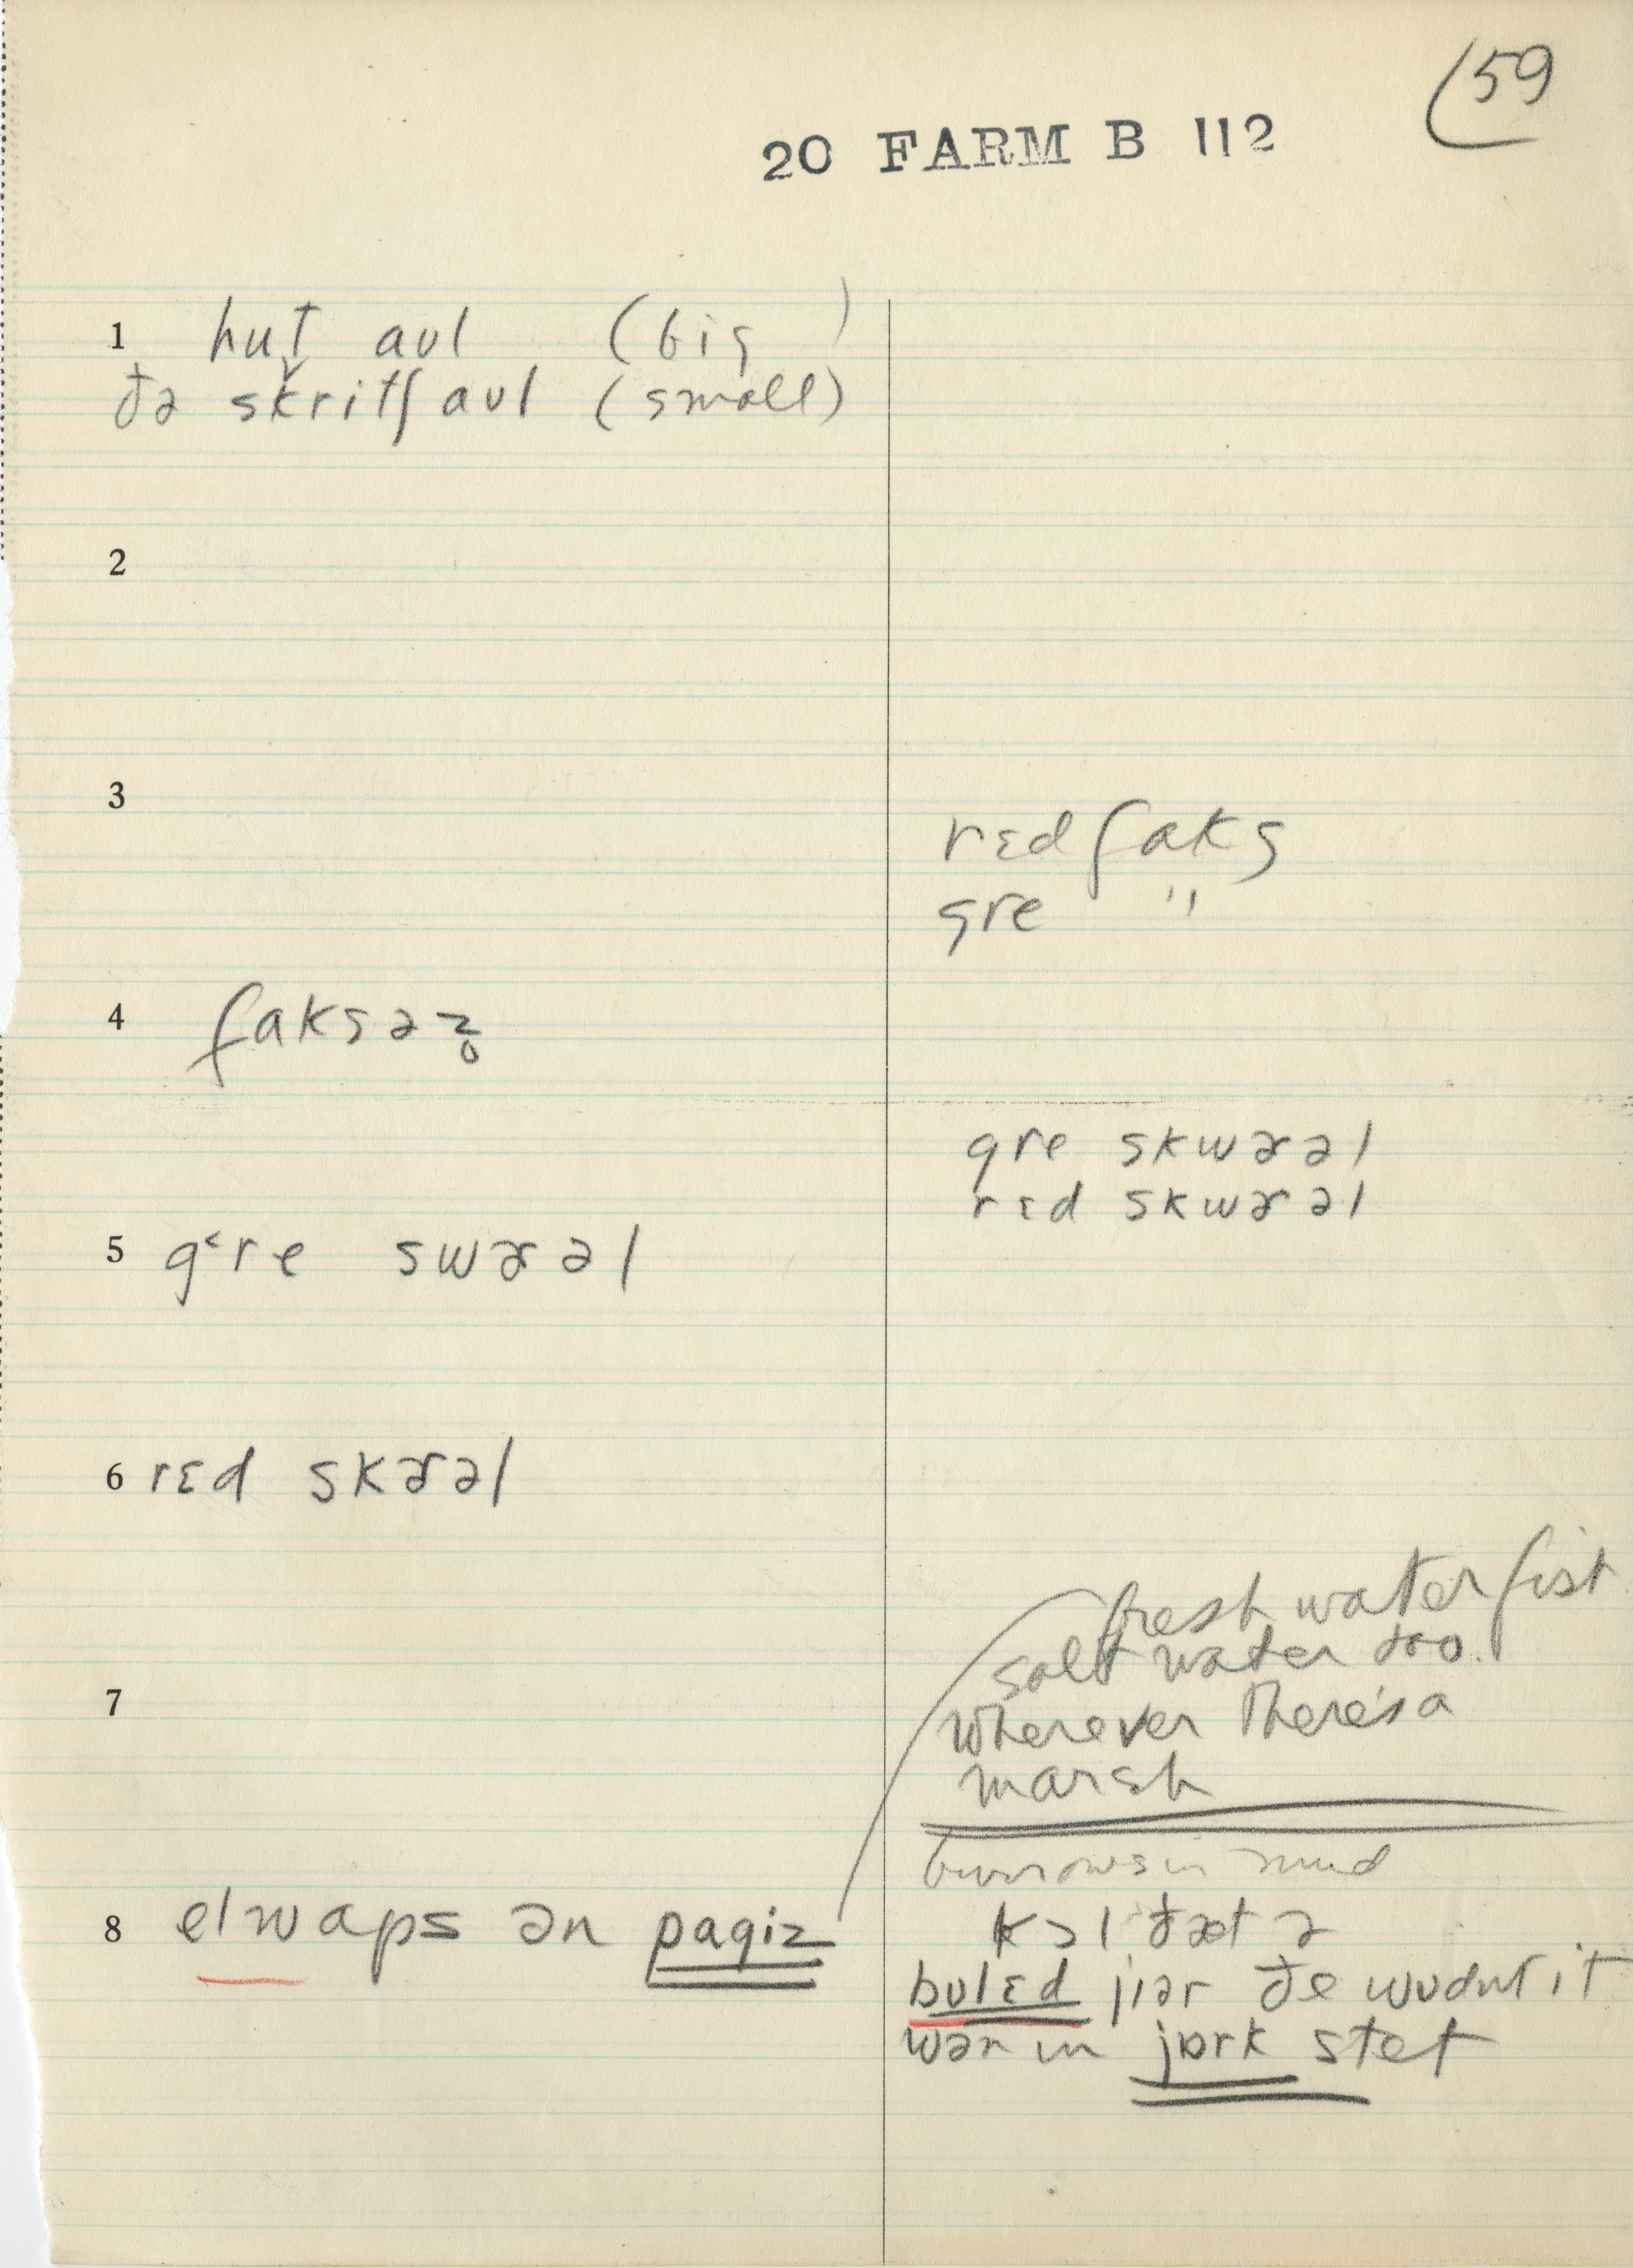 59
20 FARM B 112
1 hut̬ aʊl (big)
ðə skritʃ aʊl (small)
2
3
rɛd faks
gre "
4 faksəz̥
gre skwɚəl
rɛd skwɚəl
5 g˂re swɚəl
6 rɛd skɚəl
fresh water fish
salt water too.
7
wherever there's a
marsh
burrows in mud
8 elwaps ən pagiz
kɔl ðæt ə
bulɛd jiər ðe wʊdnt it
wər in jɒrk stet